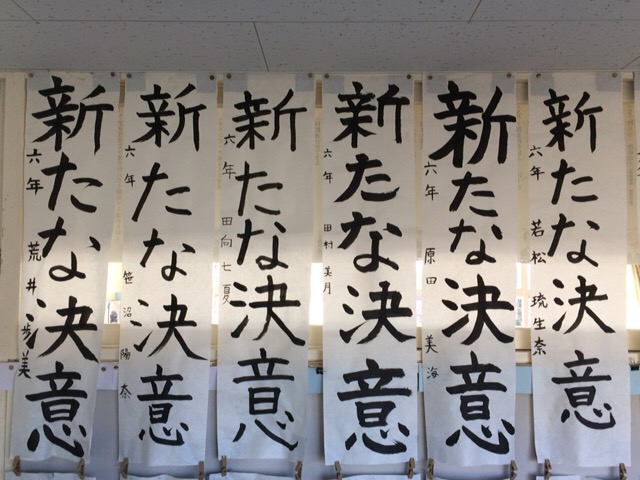 新たな決意
六年 荒井歩美
新たな決意
六年 笹沼陽奈
新たな決意
六年 田向七夏
新たな決意
六年 田村美月
新たな決意
六年 原田美海
新たな決意
六年 若松琉生奈